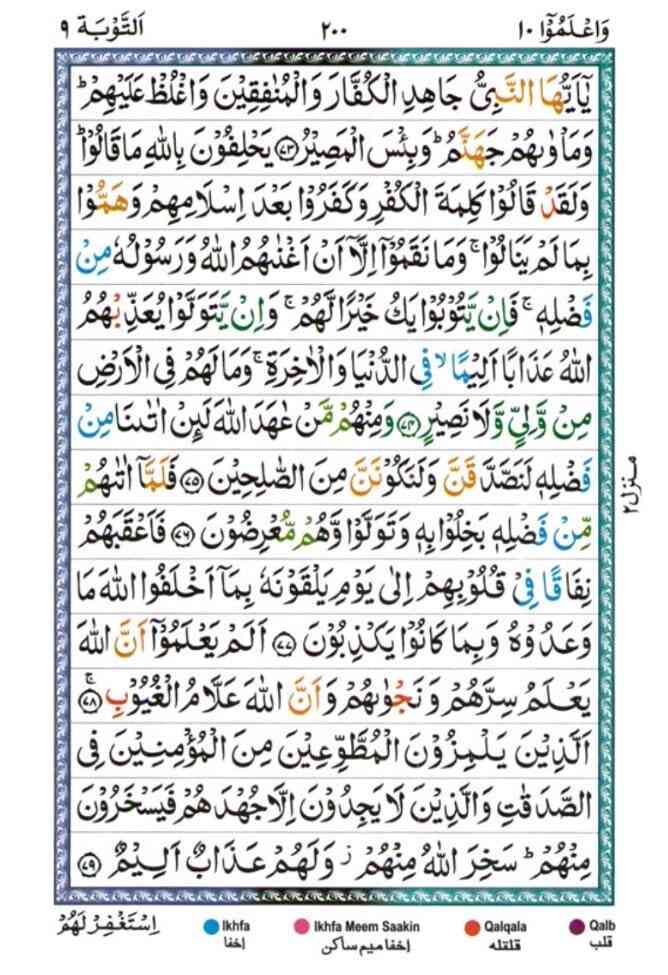 وَاعْلَمُوْۤا ١٠ ٢٠٠ اَلتَّوْبَة ٩
يٰۤاَيُّهَا النَّبِيُّ جَاهِدِ الْكُفَّارَ وَالْمُنٰفِقِيْنَ وَاغْلُظْ عَلَيْهِمْ ؕ
وَمَاْوٰىهُمْ جَهَنَّمُ ؕ وَبِئْسَ الْمَصِيْرُ ﴿٧٣﴾ يَحْلِفُوْنَ بِاللّٰهِ مَا قَالُوْا ؕ
وَلَقَدْ قَالُوْا كَلِمَةَ الْكُفْرِ وَكَفَرُوْا بَعْدَ اِسْلَامِهِمْ وَهَمُّوْا
بِمَا لَمْ يَنَالُوْا ۚ وَمَا نَقَمُوْۤا اِلَّاۤ اَنْ اَغْنٰىهُمُ اللّٰهُ وَرَسُوْلُهٗ مِنْ
فَضْلِهٖ ۚ فَاِنْ يَّتُوْبُوْا يَكُ خَيْرًا لَّهُمْ ۚ وَاِنْ يَّتَوَلَّوْا يُعَذِّبْهُمُ
اللّٰهُ عَذَابًا اَلِيْمًا ۙ فِي الدُّنْيَا وَالْاٰخِرَةِ ۚ وَمَا لَهُمْ فِي الْاَرْضِ
مِنْ وَّلِيٍّ وَّلَا نَصِيْرٍ ﴿٧٤﴾ وَمِنْهُمْ مَّنْ عٰهَدَ اللّٰهَ لَئِنْ اٰتٰىنَا مِنْ
فَضْلِهٖ لَنَصَّدَّقَنَّ وَلَنَكُوْنَنَّ مِنَ الصّٰلِحِيْنَ ﴿٧٥﴾ فَلَمَّاۤ اٰتٰىهُمْ
مِّنْ فَضْلِهٖ بَخِلُوْا بِهٖ وَتَوَلَّوْا وَّهُمْ مُّعْرِضُوْنَ ﴿٧٦﴾ فَاَعْقَبَهُمْ
نِفَاقًا فِيْ قُلُوْبِهِمْ اِلٰى يَوْمِ يَلْقَوْنَهٗ بِمَاۤ اَخْلَفُوا اللّٰهَ مَا
وَعَدُوْهُ وَبِمَا كَانُوْا يَكْذِبُوْنَ ﴿٧٧﴾ اَلَمْ يَعْلَمُوْۤا اَنَّ اللّٰهَ
يَعْلَمُ سِرَّهُمْ وَنَجْوٰىهُمْ وَاَنَّ اللّٰهَ عَلَّامُ الْغُيُوْبِ ۚ﴿٧٨﴾
اَلَّذِيْنَ يَلْمِزُوْنَ الْمُطَّوِّعِيْنَ مِنَ الْمُؤْمِنِيْنَ فِي
الصَّدَقٰتِ وَالَّذِيْنَ لَا يَجِدُوْنَ اِلَّا جُهْدَهُمْ فَيَسْخَرُوْنَ
مِنْهُمْ ؕ سَخِرَ اللّٰهُ مِنْهُمْ ؗ وَلَهُمْ عَذَابٌ اَلِيْمٌ ﴿٧٩﴾
منزل ٢
اِسْتَغْفِرْ لَهُمْ
Ikhfa Ikhfa Meem Saakin Qalqala Qalb
إخفا إخفا ميم ساكن قلقله قلب